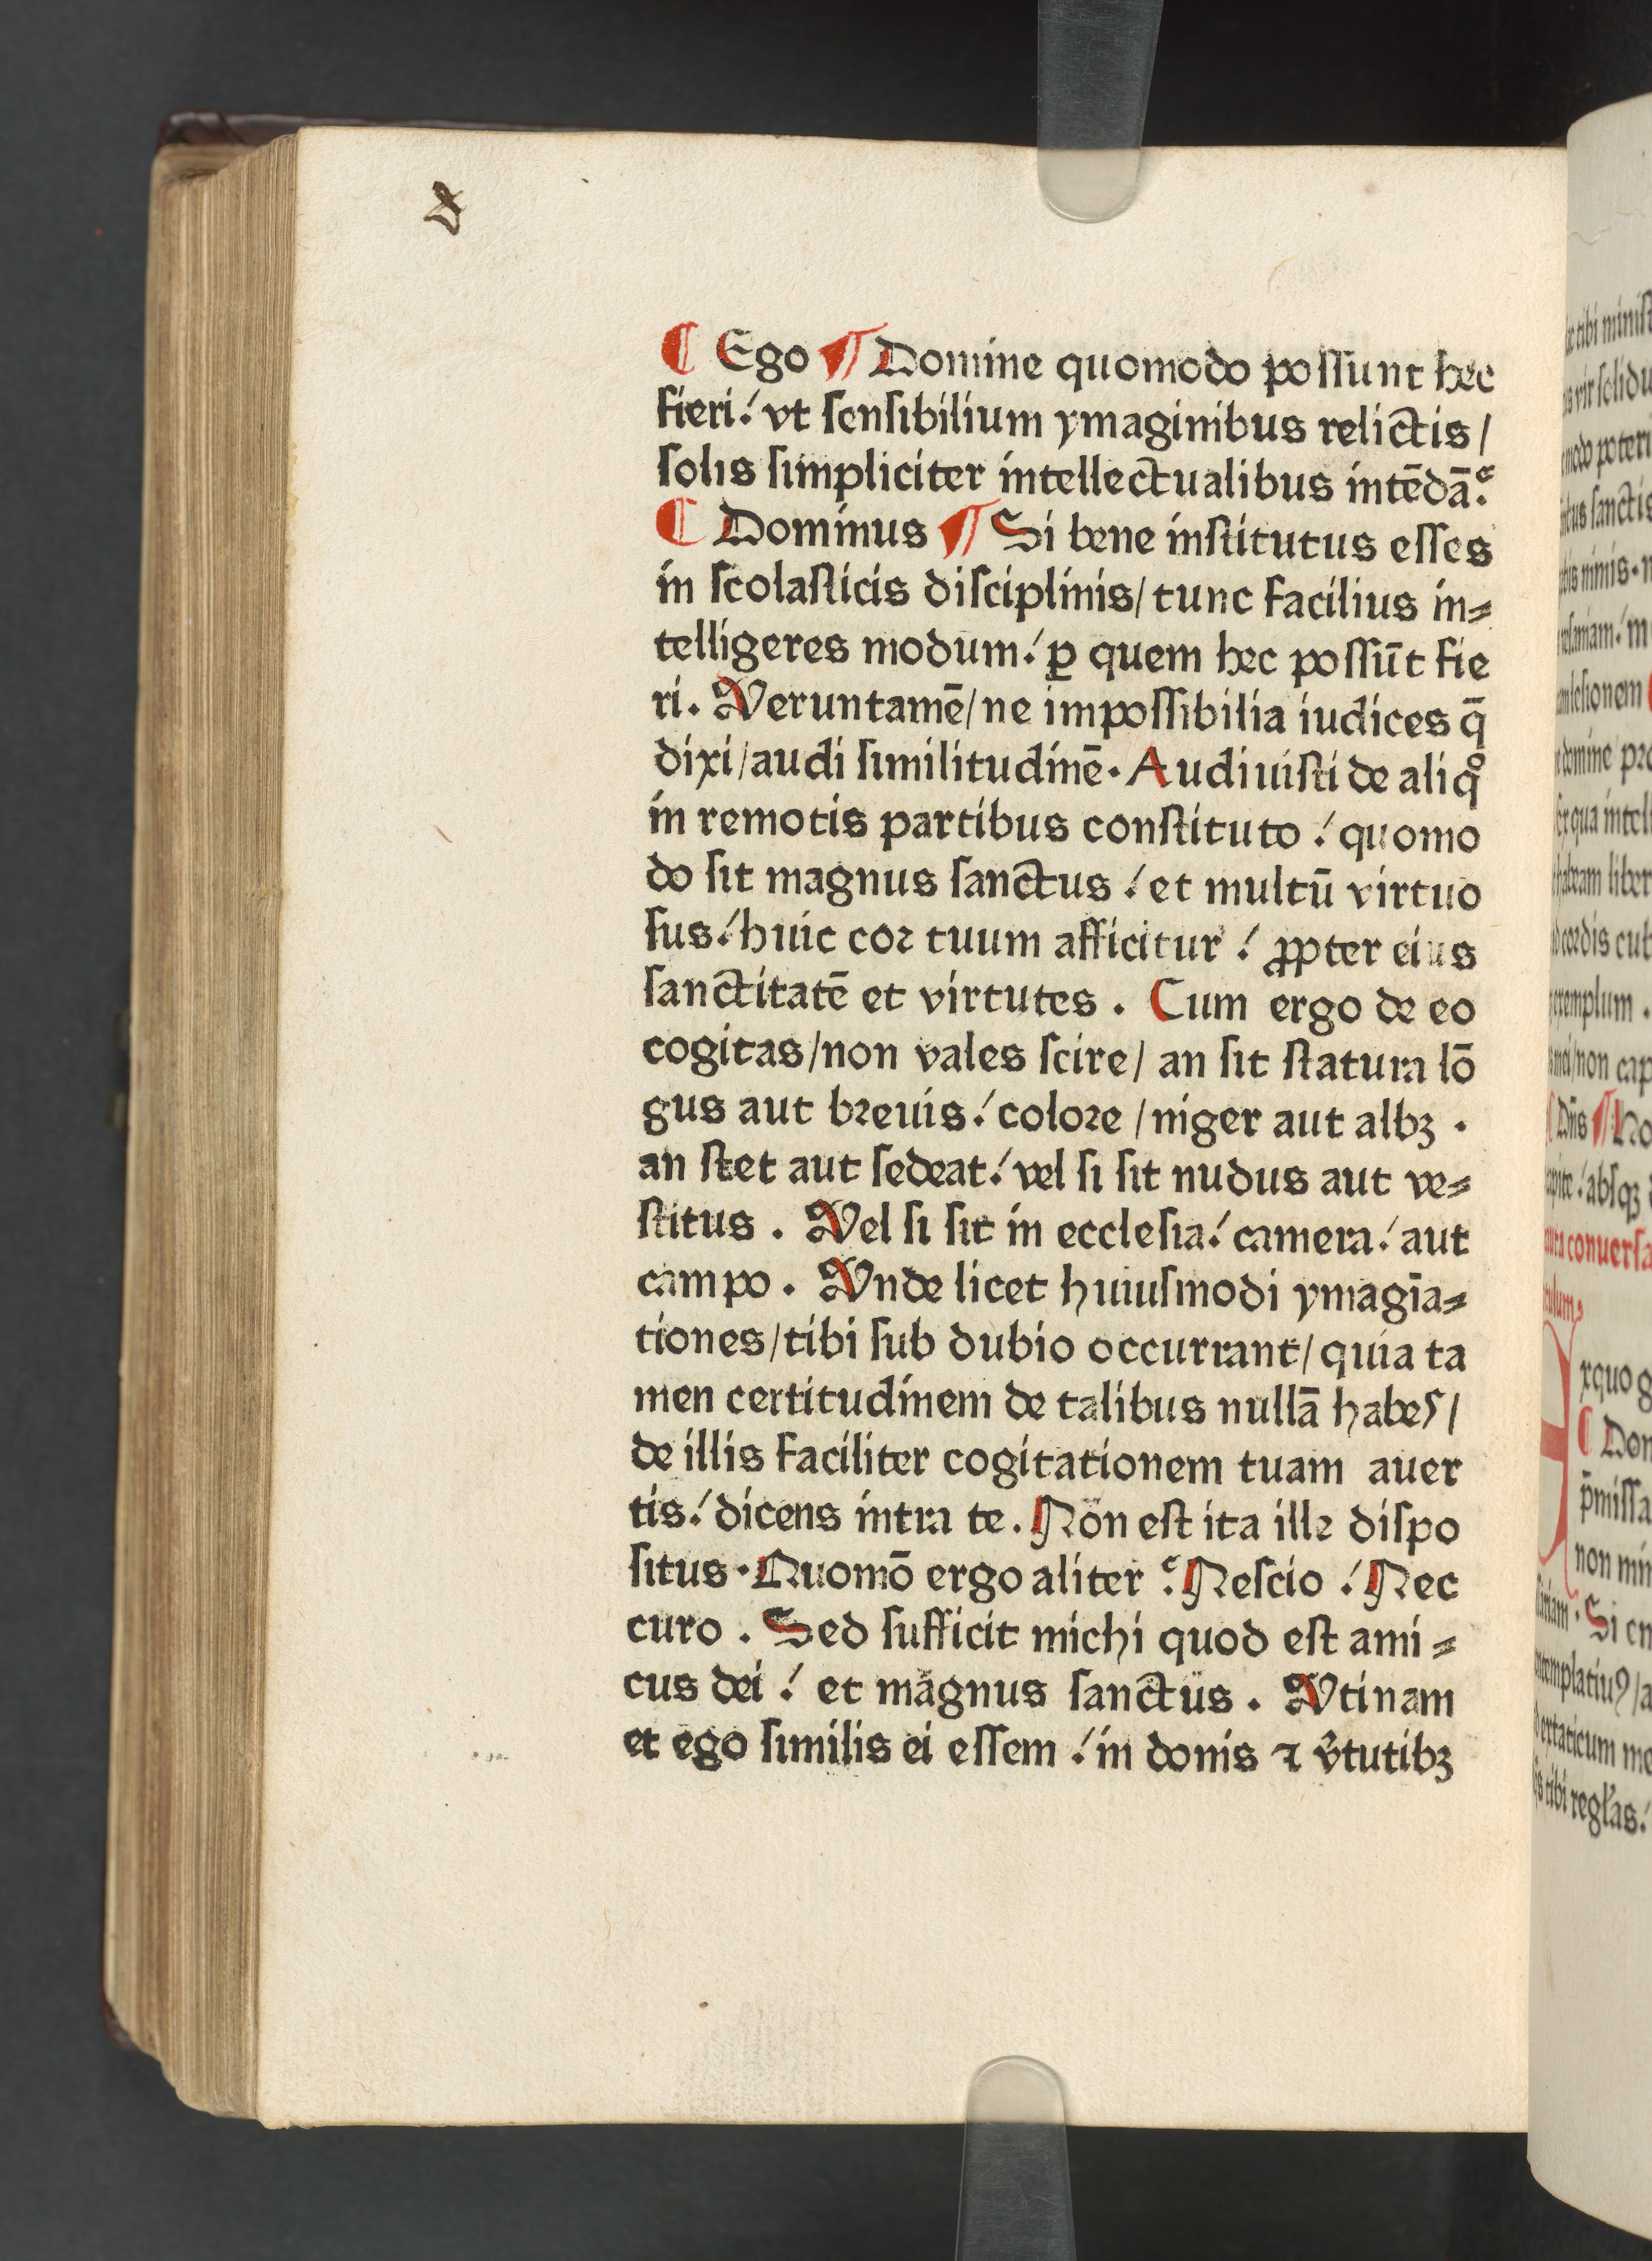 ¶ Ego ¶ Domine quomodo poſſunt hec
fieri.ꞌ vt ſenſibilium ymaginibus relictis /
ſolis ſimpliciter intellectualibus intēdā?
¶ Dominus ¶ Si bene inſtitutus eſſes
in ſcolaſticis diſciplinis / tunc facilius in⸗
telligeres modum.ꞌ ꝑ quem hec poſſūt fie
ri. Veruntamē / ne impoſſibilia iudices q̄
dixi / audi ſimilitudinē. Audiuiſti de aliqͦ
in remotis partibus conſtituto.ꞌ quomo
do ſit magnus ſanctus.ꞌ et multū virtuo
ſus.ꞌ huic coꝛ tuum afficitur.ꞌ ꝓpter eius
ſanctitatē et virtutes. Cum ergo de eo
cogitas / non vales ſcire / an ſit ſtatura lō
gus aut bꝛeuis.ꞌ coloꝛe / niger aut albꝫ.
an ſtet aut ſedeat.ꞌ vel ſi ſit nudus aut ve⸗
ſtitus. Vel ſi ſit in eccleſia.ꞌ camera.ꞌ aut
campo. Vnde licet huiuſmodi ymagīa⸗
tiones / tibi ſub dubio occurrant / quia ta
men certitudinem de talibus nullā habes /
de illis faciliter cogitationem tuam auer
tis.ꞌ dicens intra te. Non eſt ita ille diſpo
ſitus. Quomō ergo aliter? Neſcio.ꞌ Nec
curo. Sed ſufficit michi quod eſt ami⸗
cus dei.ꞌ et magnus ſanctus. Vtinam
et ego ſimilis ei eſſem.ꞌ in donis ⁊ v̓tutibꝫ
tibi miniſt
vir ſolidu
poteri
ſanctis
nimis. n
m
domine pꝛo
qua intell
liber
coꝛdis cub
exemplum.
mei / non cap
Dn̄s ¶ No
abſqꝫ
conuerſa
xquo g
¶ Dom
p̄miſſa
non min
Si en
extaticum me
tibi regl̓as.ꞌ